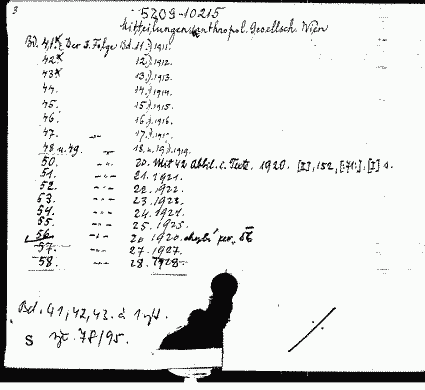 3
5209-10215
Mitteilungen d. anthropol. Gesellsch. Wien
Bd. 41.* Der 3. Folge Bd. 11.) 1911.
42* 12.) 1912.
43* 13.) 1913.
44. 14.) 1914.
45. 15.) 1915.
46. 16.) 1916.
47. -"- 17.) 1917.
48 u. 49. -"- 18. u. 19.) 1919.
50. -"- 20. Mit 42 Abbil. i. Texte. 1920. [I], 152, [:71:], [I] s.
51. -"- 21. 1921.
52. -"- 22. 1922.
53. -"- 23. 1923.
54. -"- 24. 1924.
55. -"- 25. 1925.
56. -"- 26. 1926. 56
57. -"- 27. 1927
58. -"- 28. 1928
Bd. 41, 42, 43. à 1
S 78/95.